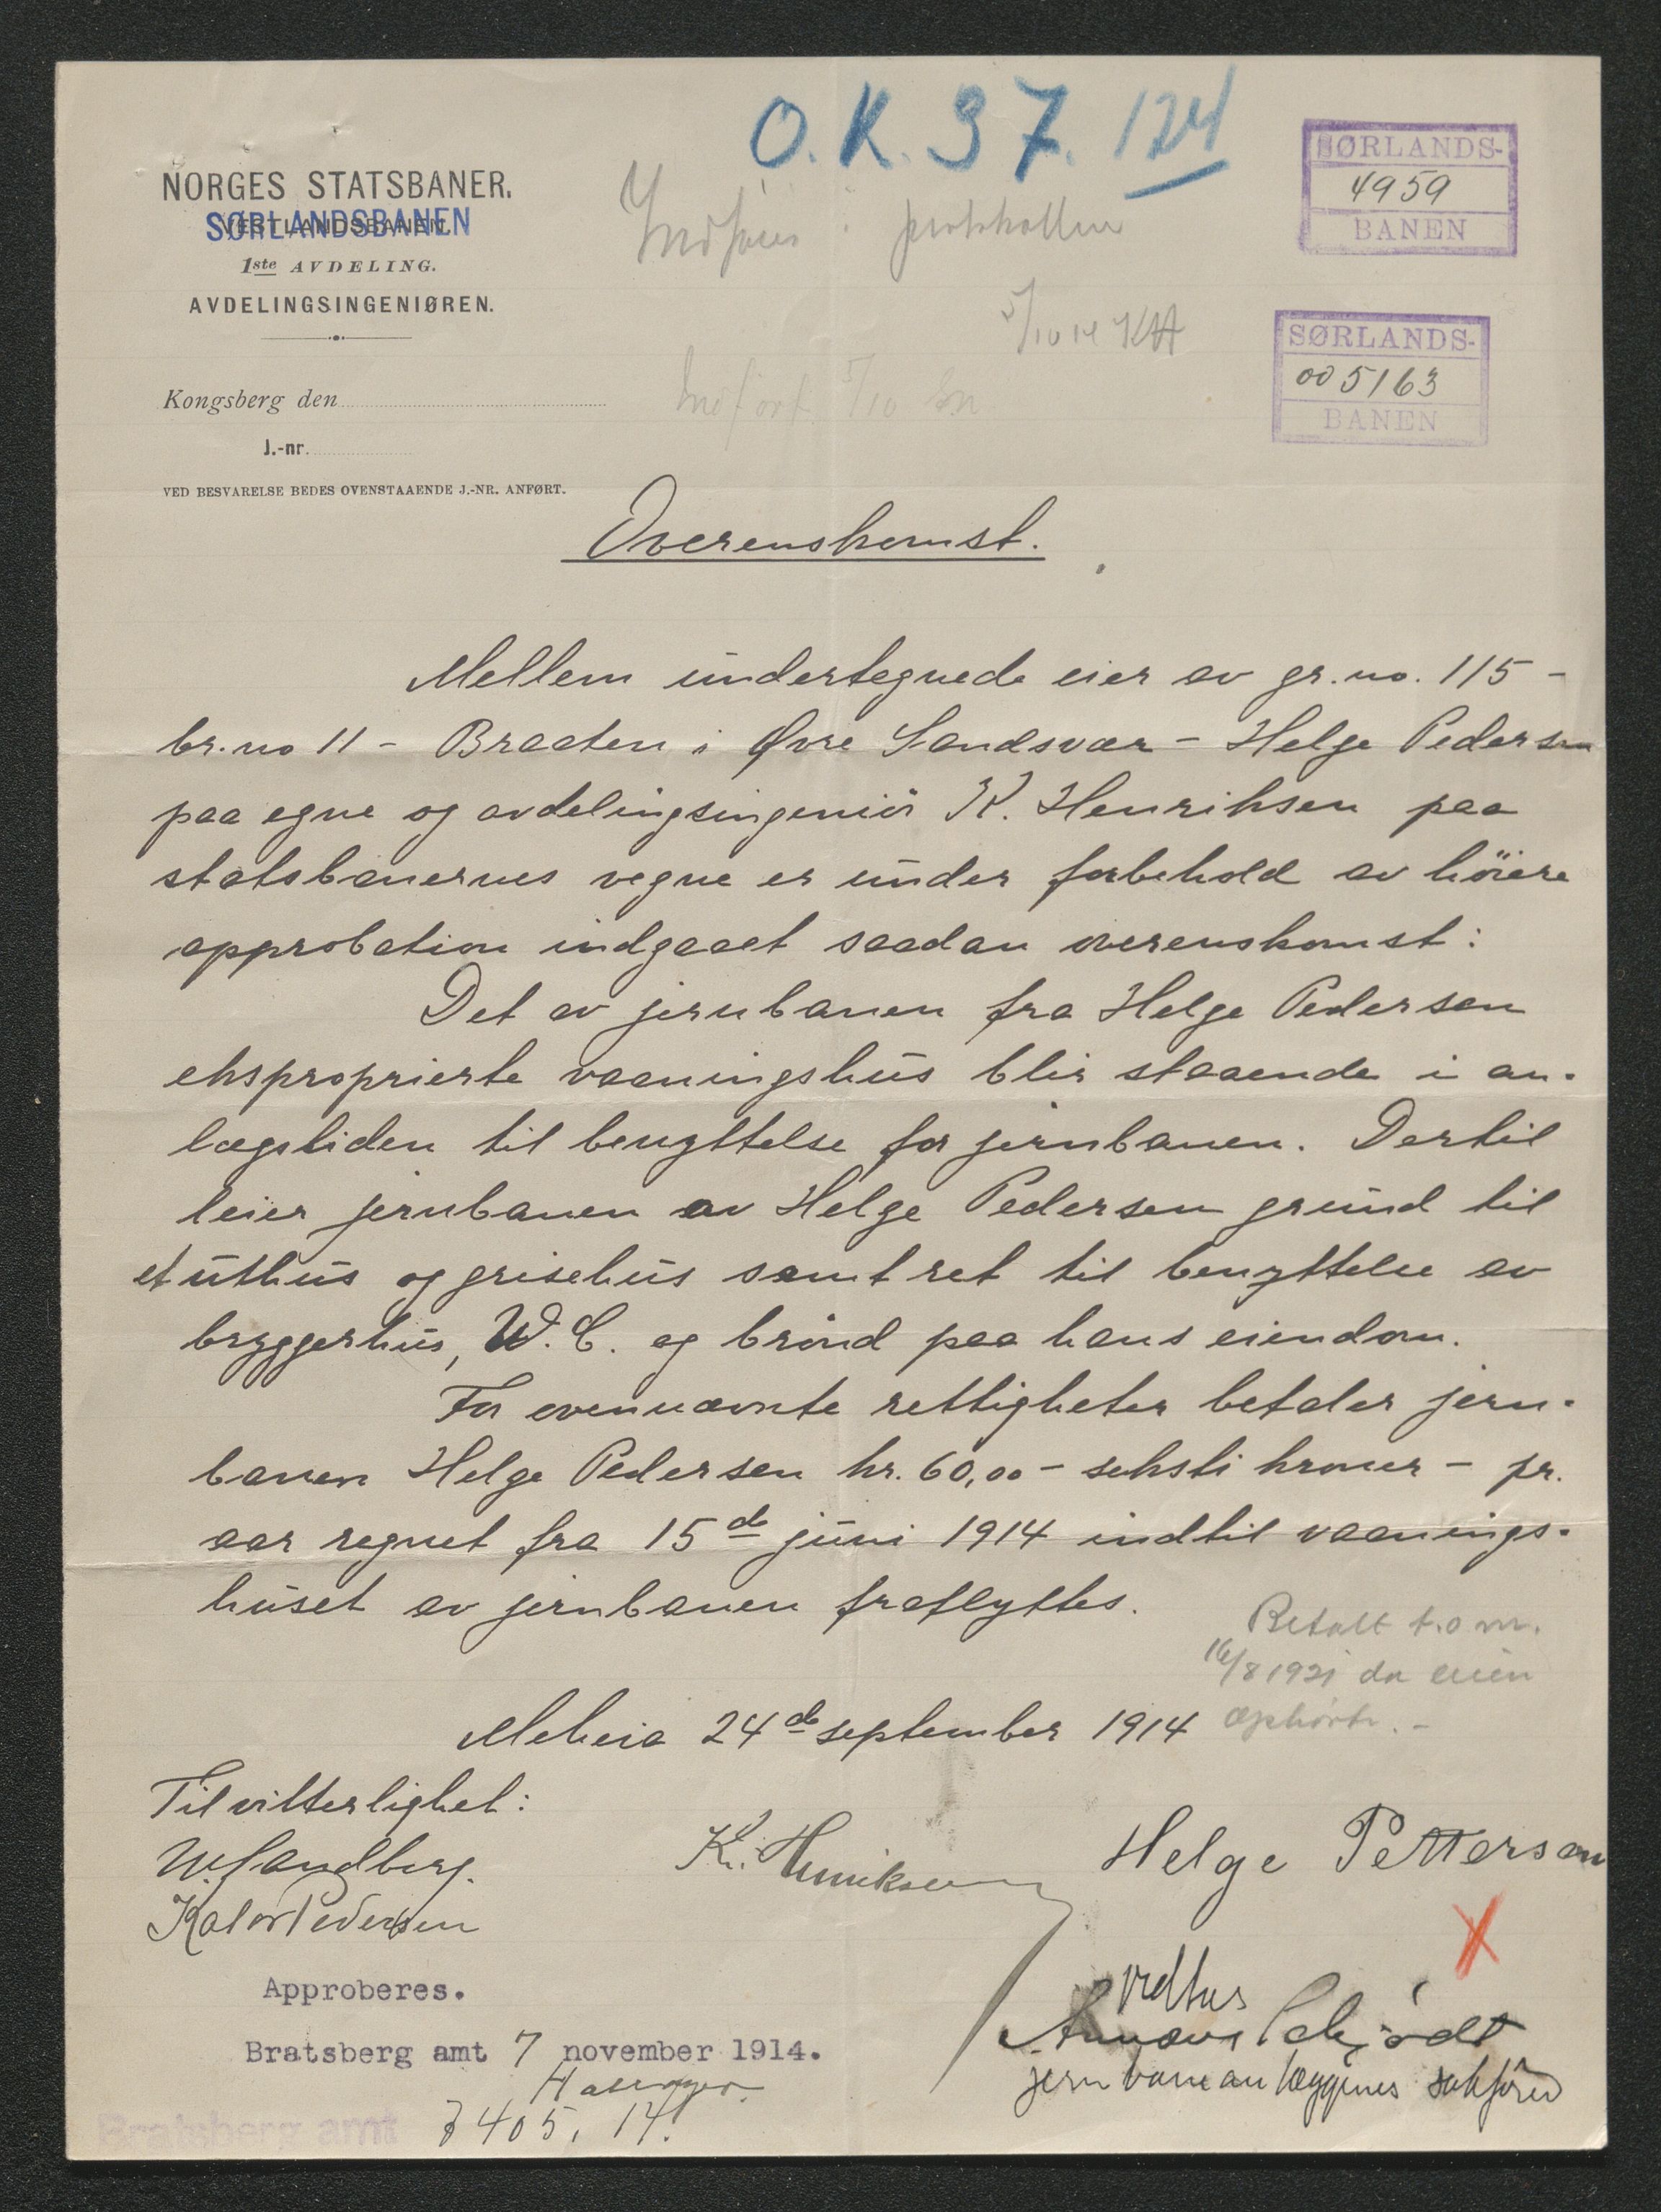 O.K. 37. 124
NORGES STATSBANER.
VESTLANDSBANEN.
SØRLANDSBANEN
1ste AVDELING.
AVDELINGSINGENIØREN.
Kongsberg den
J.-nr.
VED BESVARELSE BEDES OVENSTAAENDE J.-NR. ANFØRT.
Indføres i protokollen
5/10 14 KH
Indført 5/10
SØRLANDS-
4959
BANEN
SØRLANDS-
005163
BANEN
Overenskomst.
Mellem undertegnede eier av gr.no. 115 -
br.no 11 - Braaten i Øvre Sandsvær - Helge Pedersen
paa egne og avdelingsingeniör K. Henriksen paa
statsbanernes vegne er under forbehold av höiere
approbation indgaaet saadan overenskomst:
Det av jernbanen fra Helge Pedersen
eksproprierte vaaningshus blir staaende i an-
lægstiden til benyttelse for jernbanen. Dertil
leier jernbanen av Helge Pedersen grund til
et uthus og grisehus samt ret til benyttelse av
bryggerhus, W.C. og brönd paa hans eiendom.
For ovennævnte rettigheter betaler jern-
banen Helge Pedersen kr. 60,00 - seksti kroner - pr.
aar regnet fra 15de juni 1914 indtil vaanings-
huset av jernbanen fraflyttes.
Betalt t.o.m.
16/8 1921 da leien
ophörte. -
Meheia 24de september 1914
Til vitterlighet:
W. Sandberg.
Kalor Pedersen
K. Henriksen
Helge Pettersen
X
Vedtas
Schjödt
jernbaneanlæggenes sakförer
Approberes.
Bratsberg amt 7 november 1914.
3405, 14.
Bratsberg amt